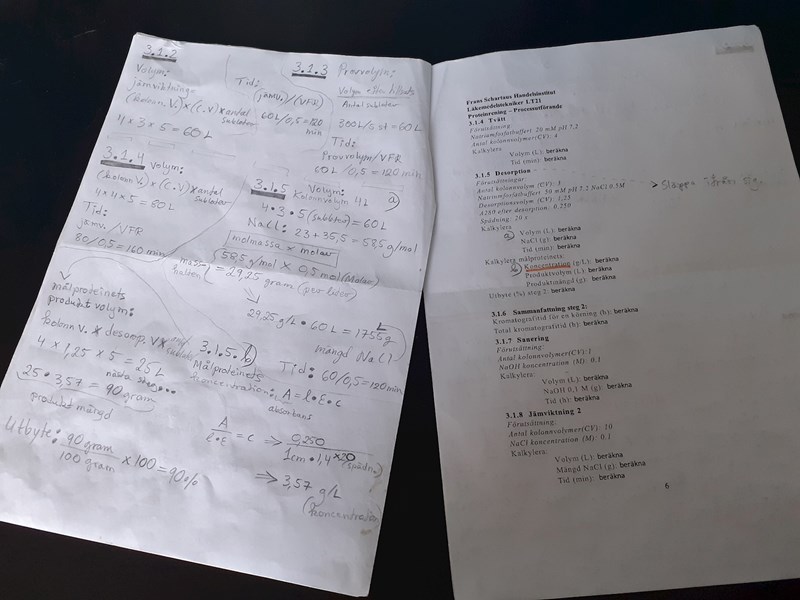 3.1.2
Volym:
jämviktning
(kolonn V.) x (C.V) x antal
sublatar
4 x 3 x 5 = 60 L
Tid:
jämv./(VFR)
60L/0,5 = 120
min
3.1.3 Provvolym:
Antal sublatar
300L/5 st = 60 L
Tid:
Provvolym/VFR
60 L/0,5 = 120 min
3.1.4 Volym:
(kolonn V.) x (C.V) x antal
sublatar
4 x 4 x 5 = 80 L
Tid:
jämv./VFR
80/0,5 = 160 min
3.1.5 Volym: a)
Kolonnvolym 4L
4 · 3 · 5 (sublatar) = 60 L
NaCl: 23 + 35,5 = 58,5 g/mol
molmassa x molar
(58,5 g/mol X 0,5 mol (Molar)
29,25 gram (per liter)
29,25 g/L · 60 L = 1755 g
mängd NaCl
målproteinets
produkt volym:
kolonn V. x desorp. V x
4 x 1,25 x 5 = 25 L
nästa steg...
25 · 3,57 = 90 gram
produkt mängd
Utbyte: 90 gram / 100 gram x 100 = 90%
3.1.5 b)
Målproteinets
koncentration:
Tid: 60/0,5 = 120 min
A = l · ε · c
absorbans
A / l · ε = c => 0,250 / 1cm · 1,4 x 20 (spädn.)
=> 3,57 g/L
(koncentration)
Frans Schartaus Handelsinstitut
Läkemedelstekniker LT21
Proteinrening – Processutförande
3.1.4 Tvätt
Förutsättning:
Natriumfosfatbuffert: 20 mM pH 7.2
Antal kolonnvolymer(CV): 4
Kalkylera:
Volym (L): beräkna
Tid (min): beräkna
3.1.5 Desorption
Förutsättningar:
Antal kolonnvolym (CV): 3
Natriumfosfatbuffert: 50 mM pH 7.2 NaCl 0.5M
Desorptionsvolym (CV): 1,25
A280 efter desorption: 0.250
Spädning: 20 x
> Släppa ifrån sig.
Kalkylera
a) Volym (L): beräkna
NaCl (g): beräkna
Tid (min): beräkna
Kalkylera målproteinets:
b) Koncentration (g/L): beräkna
Produktvolym (L): beräkna
Produktmängd (g): beräkna
Utbyte (%) steg 2: beräkna
3.1.6 Sammanfattning steg 2:
Kromatografitid för en körning (h): beräkna
Total kromatografitid (h): beräkna
3.1.7 Sanering
Förutsättning:
Antal kolonnvolymer(CV): 1
NaOH koncentration (M): 0.1
Kalkylera:
Volym (L): beräkna
NaOH 0,1 M (g): beräkna
Tid (h): beräkna
3.1.8 Jämviktning 2
Förutsättning:
Antal kolonnvolymer(CV): 10
NaCl koncentration (M): 0.1
Kalkylera
Volym (L): beräkna
Mängd NaCl (g): beräkna
Tid (min): beräkna
6